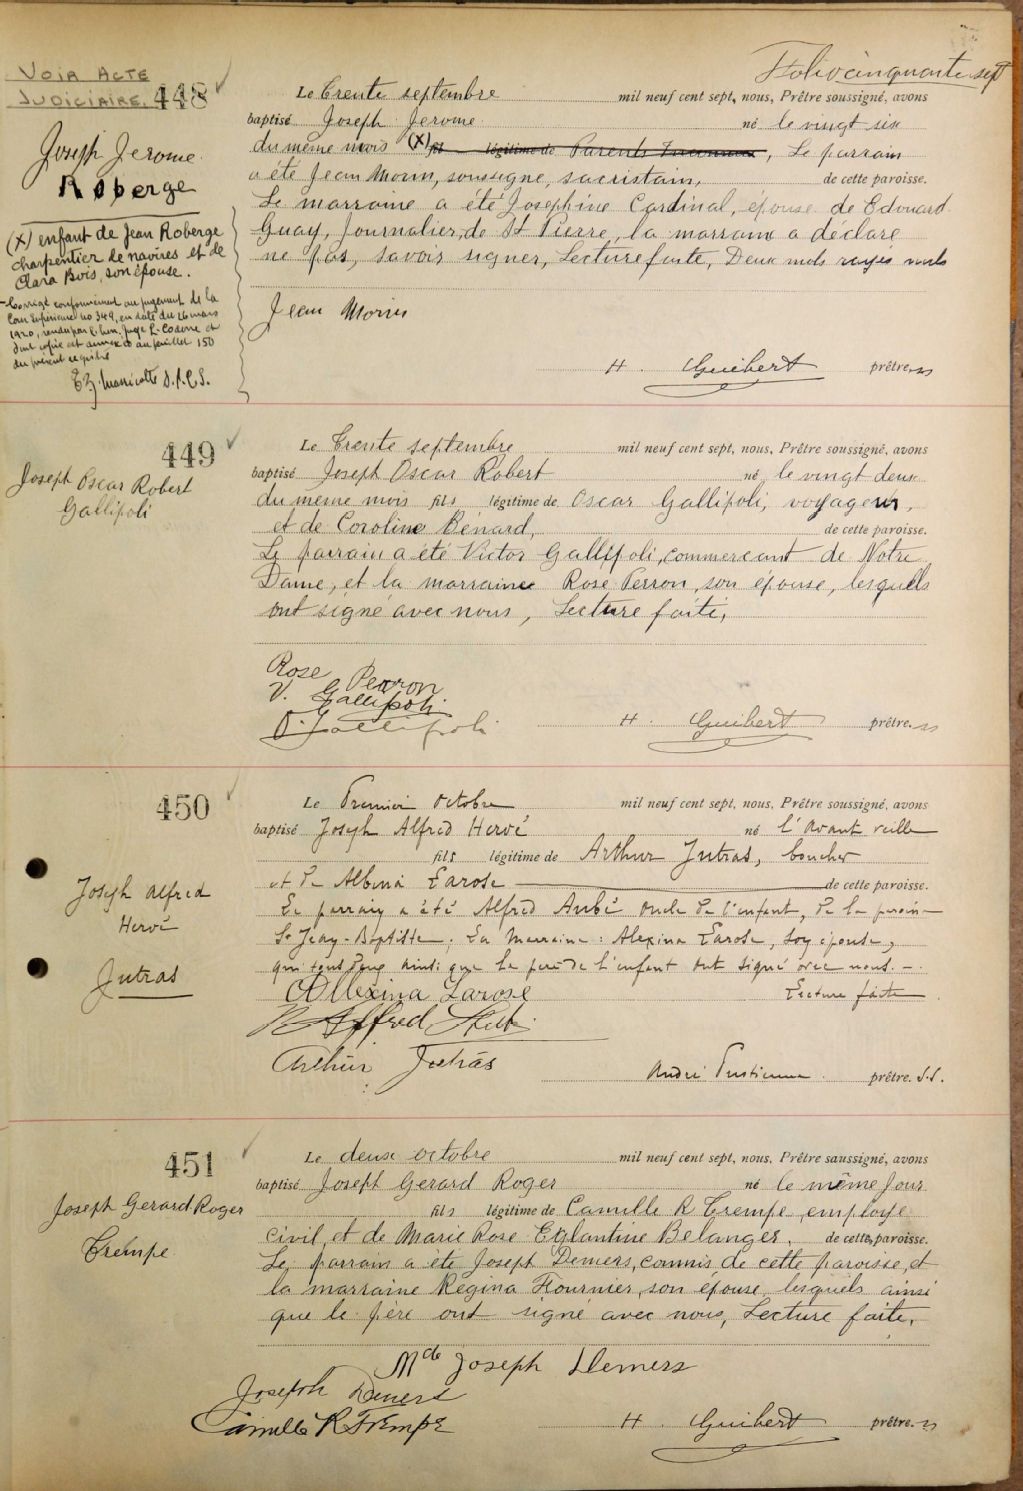 Folio cinquante sept
VOIR ACTE
JUDICIAIRE. 448
Joseph Jerome
Roberge
(X) enfant de Jean Roberge
charpentier de navires et de
Clara Bois, son épouse.
Corrigé conformément au jugement de la
Cour Supérieure no 349, en date du 26 mars
1920, rendu par l'hon. Juge L. Coderre et
dont copie est annexée au feuillet 150
du présent registre
Le Trente septembre mil neuf cent sept, nous, Prêtre soussigné, avons
baptisé Joseph Jerome né le vingt six
du même mois (X) fils légitime de Parents Inconnus, Le parrain
a été Jean Morin, soussigné, sacristain, de cette paroisse.
La marraine a été Josephine Cardinal, épouse de Edouard
Guay, Journalier, de St Pierre, la marraine a déclaré
ne pas, savoir signer, Lecture faite, Deux mots rayés nuls
Jean Morin
H. Guibert prêtre
449
Joseph Oscar Robert
Gallipoli
Le Trente septembre mil neuf cent sept, nous, Prêtre soussigné, avons
baptisé Joseph Oscar Robert né le vingt deux
du même mois fils légitime de Oscar Gallipoli, voyageur,
et de Coroline Bénard, de cette paroisse.
Le parrain a été Victor Gallipoli, commercant de Notre
Dame, et la marraine Rose Perron, son épouse, lesquels
ont signé avec nous, Lecture faite,
Rose Perron
V. Gallipoli
O. Gallipoli
H. Guibert prêtre
450
Joseph Alfred
Hervé
Jutras
Le Premier Octobre mil neuf cent sept, nous, Prêtre soussigné, avons
baptisé Joseph Alfred Hervé né l'avant veille
fils légitime de Arthur Jutras, boucher
et de Albina Larose de cette paroisse.
Le parrain a été Alfred Aubé oncle de l'enfant, de la paroisse
St Jean-Baptiste. La Marraine: Alexina Larose, son épouse,
qui tous deux ainsi que le père de l'enfant ont signé avec nous.
Lecture faite
Alexina Larose
Arthur Jutras
André prêtre. S.S.
451
Joseph Gerard Roger
Trempe
Le deux octobre mil neuf cent sept, nous, Prêtre soussigné, avons
baptisé Joseph Gerard Roger né le même jour
fils légitime de Camille R Trempe, employé
civil, et de Marie Rose Eglantine Belanger, de cette paroisse.
Le parrain a été Joseph Demers, commis de cette paroisse, et
la marraine Regina Fournier, son épouse, lesquels ainsi
que le père ont signé avec nous, Lecture faite,
Mde Joseph Demers
Joseph Demers
Camille R Trempe
H. Guibert prêtre